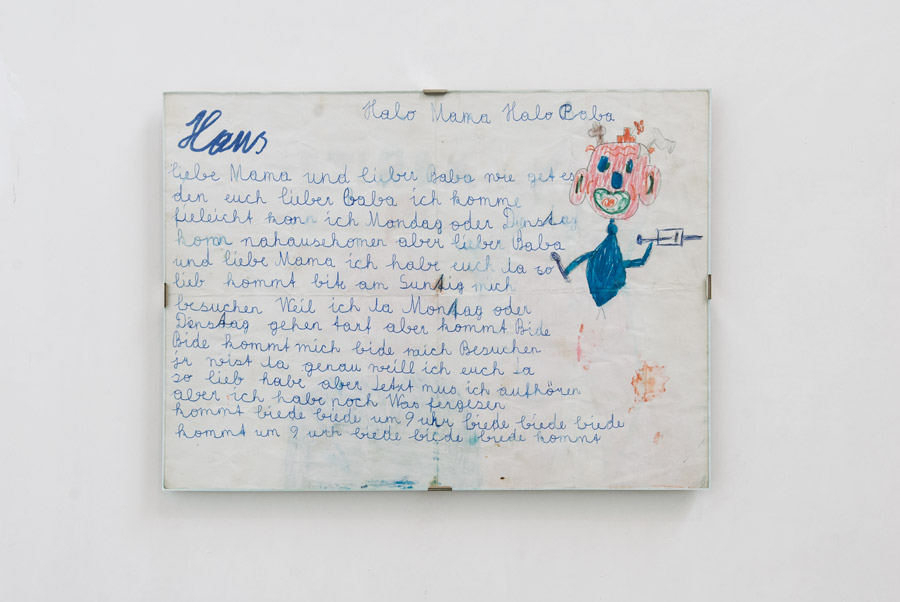 Halo Mama Halo Baba
Hans
liebe Mama und lieber Baba wie get es
den euch lieber Baba ich komme
fieleicht konn ich Mondag oder Dienstag
komm nahausekomen aber lieber Baba
und liebe Mama ich habe euch da so
lieb kommt bite am Suntig mich
besuchen Weil ich da Montag oder
Denstag gehen tarf aber kommt Bide
Bide kommt mich bide mich Besuchen
ir wist da genau weill ich euch da
so lieb habe aber Jetzt mus ich aufhören
aber ich habe noch Was fergesen
kommt biede biede um 9 uhr biede biede biede
kommt um 9 urh biede biede biede kommt